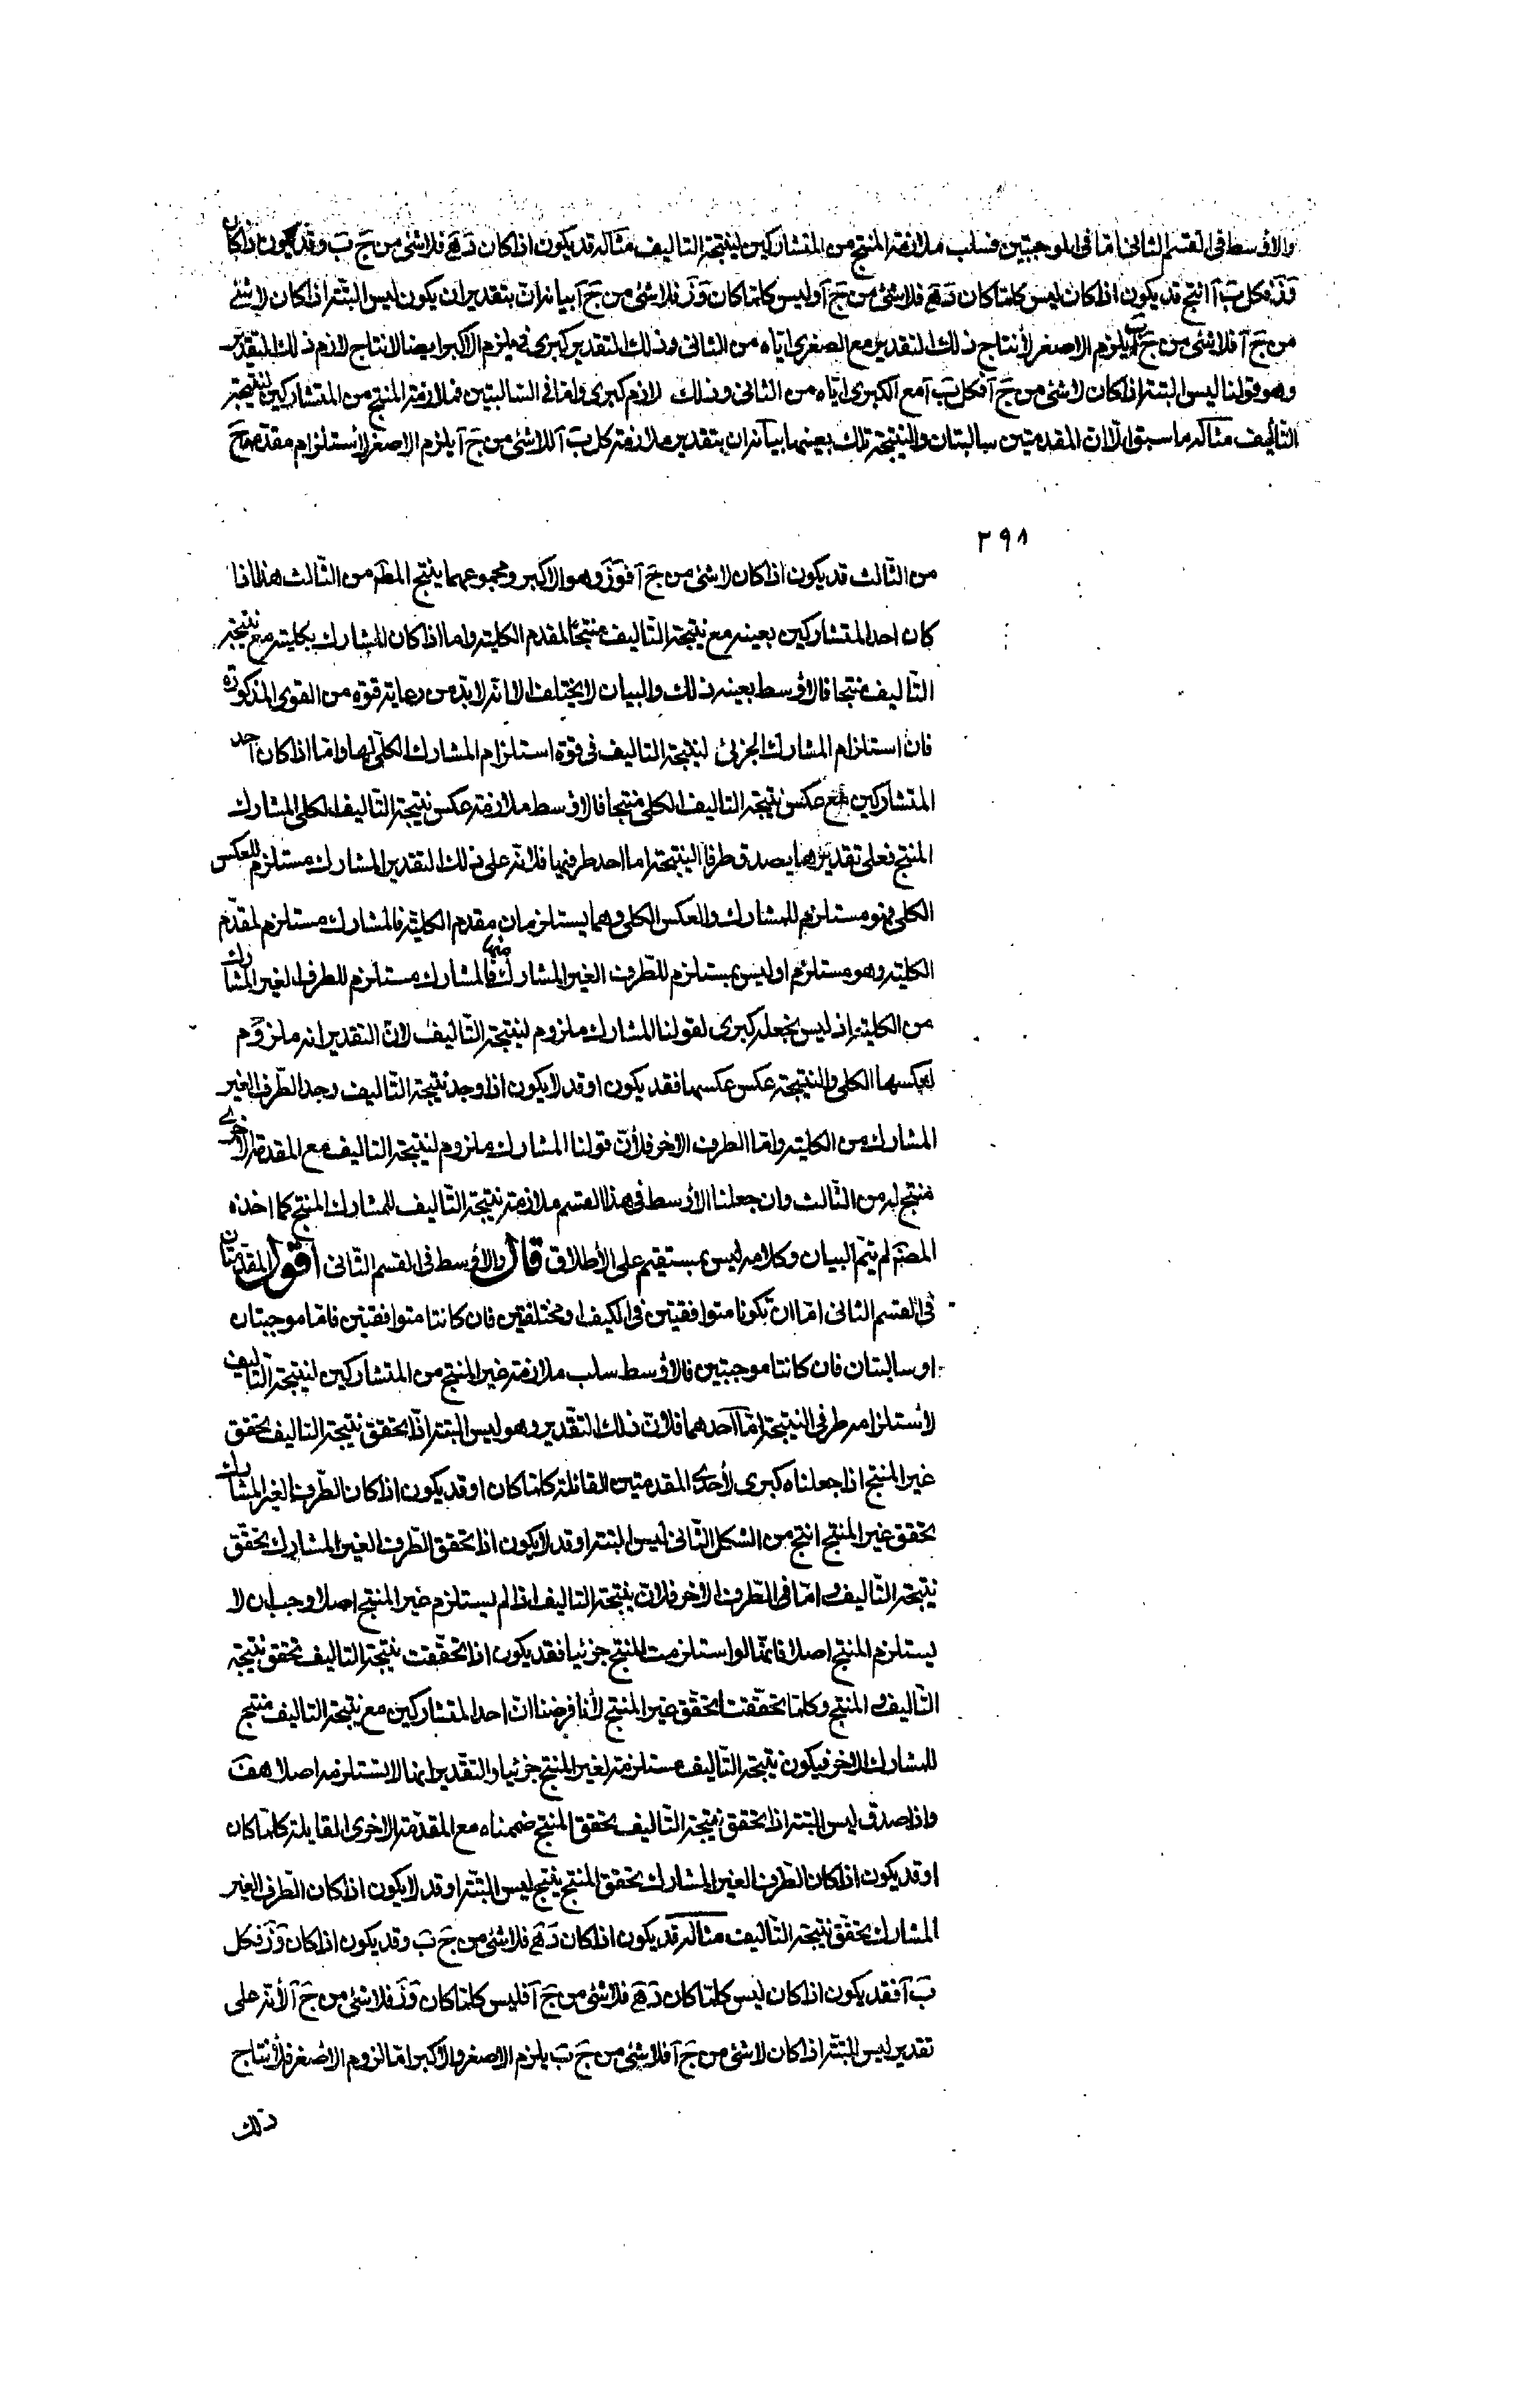 والاوسط فى القسم الثانى امّا فى الموجبتين فسلب ملازمة المنتج من المتشاركين لنتيجة التاليف مثاله قد يكون اذا كان دَهَ فلا شئ من جَ بَ وقد يكون اذا كان
وَزَ فكل بَ آ انتج قد يكون اذا كان ليس كلما كان دَهَ فلا شئ من جَ آ وليس كلما كان وَزَ فلا شئ من جَ آ بيانه ان بتقدير ان يكون ليس البتة اذا كان لا شئ
من جَ آ فلا شئ من جَ بَ يلزم الاصغر لأنتاج ذلك التقدير مع الصغرى اياه من الثانى وذلك التقدير كبرى فيه ويلزم الاكبر ايضا لانتاج لازم ذلك التقدير
وهو قولنا ليس البتة اذا كان لا شئ من جَ آ فكل بَ آ مع الكبرى اياه من الثانى وذلك لازم كبرى وامّا فى السالبتين فملازمة المنتج من المتشاركين لنتيجة
التأليف مثاله ما سبق الّا انّ المقدمتين سالبتان والنتيجة تلك بعينها بيانه ان بتقدير ملازمة كل بَ آ للا شئ من جَ آ يلزم الاصغر لأستلزام مقدمة جَ
٣٩٨
من الثّالث قد يكون اذا كان لا شئ من جَ آ فوَزَ وهو الاكبر ومجموعهما ينتج المط من الثّالث هذا اذا
كان احد المتشاركين بعينه مع نتيجة التّاليف منتجًا لمقدم الكلية واما اذا كان المشارك بكليته مع نتيجة
التّاليف منتجا فالأوسط بعينه ذلك والبيان لا يختلف الا انّه لا بدّ من رعاية قوة من القوى المذكورة
فان استلزام المشارك الجزئى لنتيجة التاليف فى قوة استلزام المشارك الكلّى لها وامّا اذا كان احد
المتشاركين مع عكس نتيجة التاليف الكلى منتجا فالاوسط ملازمة عكس نتيجة التّاليف الكلى المشارك
المنتج فعلى تقديرهما يصدق طرفا النتيجة اما احد طرفيها فلانّه على ذلك التقدير المشارك مستلزم للعكس
الكلى فهو مستلزم للمشارك والعكس الكلى وهما يستلزمان مقدم الكلية فالمشارك مستلزم لمقدّم
الكلية وهو مستلزم او ليس بمستلزم للطّرف الغير المشارك منها فالمشارك مستلزم للطرف الغير المشارك
من الكلية اذ ليس نجعله كبرى لقولنا المشارك ملزوم لنتيجة التّاليف لانّ التقدير انه ملزوم
لعكسها الكلى والنتيجة عكس عكسها فقد يكون او قد لا يكون اذا وجد نتيجة التّاليف وجد الطّرف الغير
المشارك من الكلية وامّا الطرف الاخر فلأنّ قولنا المشارك ملزوم لنتيجة التاليف مع المقدمة الأخرى
منتج له من الثّالث وان جعلنا الأوسط فى هذا القسم ملازمة نتيجة التّاليف للمشارك المنتج كما اخذه
المصنّه لم يتمّ البيان وكلامه ليس بمستقيم على الأطلاق قال والأوسط فى القسم الثّانى اقول المقدّمتان
فى القسم الثانى امّا ان تكونا متوافقتين فى الكيف او مختلفتين فان كانتا متوافقتين فامّا موجبتان
او سالبتان فان كانتا موجبتين فالأوسط سلب ملازمة غير المنتج من المتشاركين لنتيجة التّاليف
لأستلزامه طرفى النتيجة امّا احدهما فلانّ ذلك التقدير وهو ليس البتة اذا تحقق نتيجة التاليف تحقق
غير المنتج اذا جعلناه كبرى لأحدى المقدمتين القائلة كلما كان او قد يكون اذا كان الطّرف الغير المشارك
تحقق غير المنتج انتج من الشكل الثّانى ليس البتة او قد لا يكون اذا تحقق الطّرف الغير المشارك تحقّق
نتيجة التّاليف وامّا فى الطّرف الاخر فلانّ نتيجة التاليف اذا لم يستلزم غير المنتج اصلا وجب ان لا
يستلزم المنتج اصلا فانّها لو استلزمت المنتج جزئيا فقد يكون اذا تحقّقت نتيجة التاليف تحقق نتيجة
التّاليف والمنتج وكلما تحقّقتا تحقّق غير المنتج لأنا فرضنا انّ احد المتشاركين مع نتيجة التاليف منتج
للمشارك الاخر فيكون نتيجة التّاليف مستلزمة لغير المنتج جزئيا والتقدير انها لا تستلزمه اصلا هف
واذا صدق ليس البتة اذا تحقق نتيجة التّاليف تحقق المنتج ضممناه مع المقدّمة الاخرى القايلة كلما كان
او قد يكون اذا كان الطّرف الغير المشارك تحقق المنتج ينتج ليس البتّة او قد لا يكون اذا كان الطّرف الغير
المشارك تحقّق نتيجة التّاليف مثاله قد يكون اذا كان دَهَ فلا شئ من جَ بَ وقد يكون اذا كان وَزَ فكل
بَ آ فقد يكون اذا كان ليس كلّما كان دَهَ فلا شئ من جَ آ فليس كلما كان وَزَ فلا شئ من جَ آ لأنّه على
تقدير ليس البتّة اذا كان لا شئ من جَ آ فلا شئ من جَ بَ يلزم الاصغر والاكبر امّا لزوم الاصغر فلأنتاج
ذلك